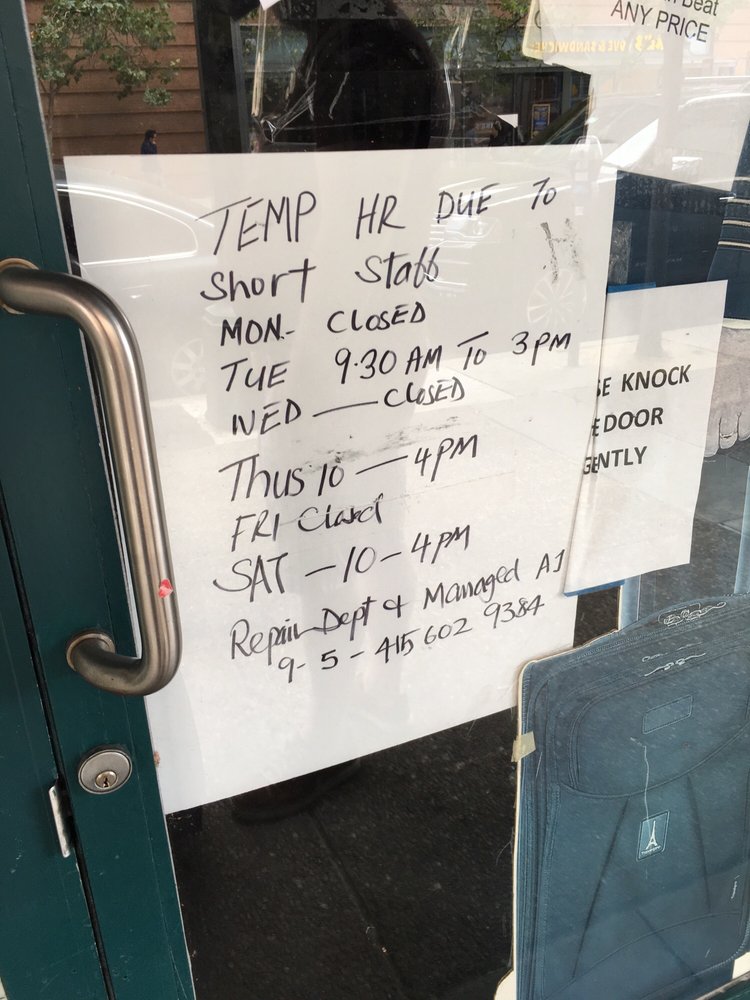 beat
ANY PRICE
TEMP HR DUE TO
Short Staff
MON- CLOSED
TUE 9.30 AM TO 3PM
WED — CLOSED
Thus 10 — 4PM
FRI Closed
SAT - 10 - 4PM
Repair Dept & Managed AJ
9 - 5 - 415 602 9384
SE KNOCK
E DOOR
GENTLY